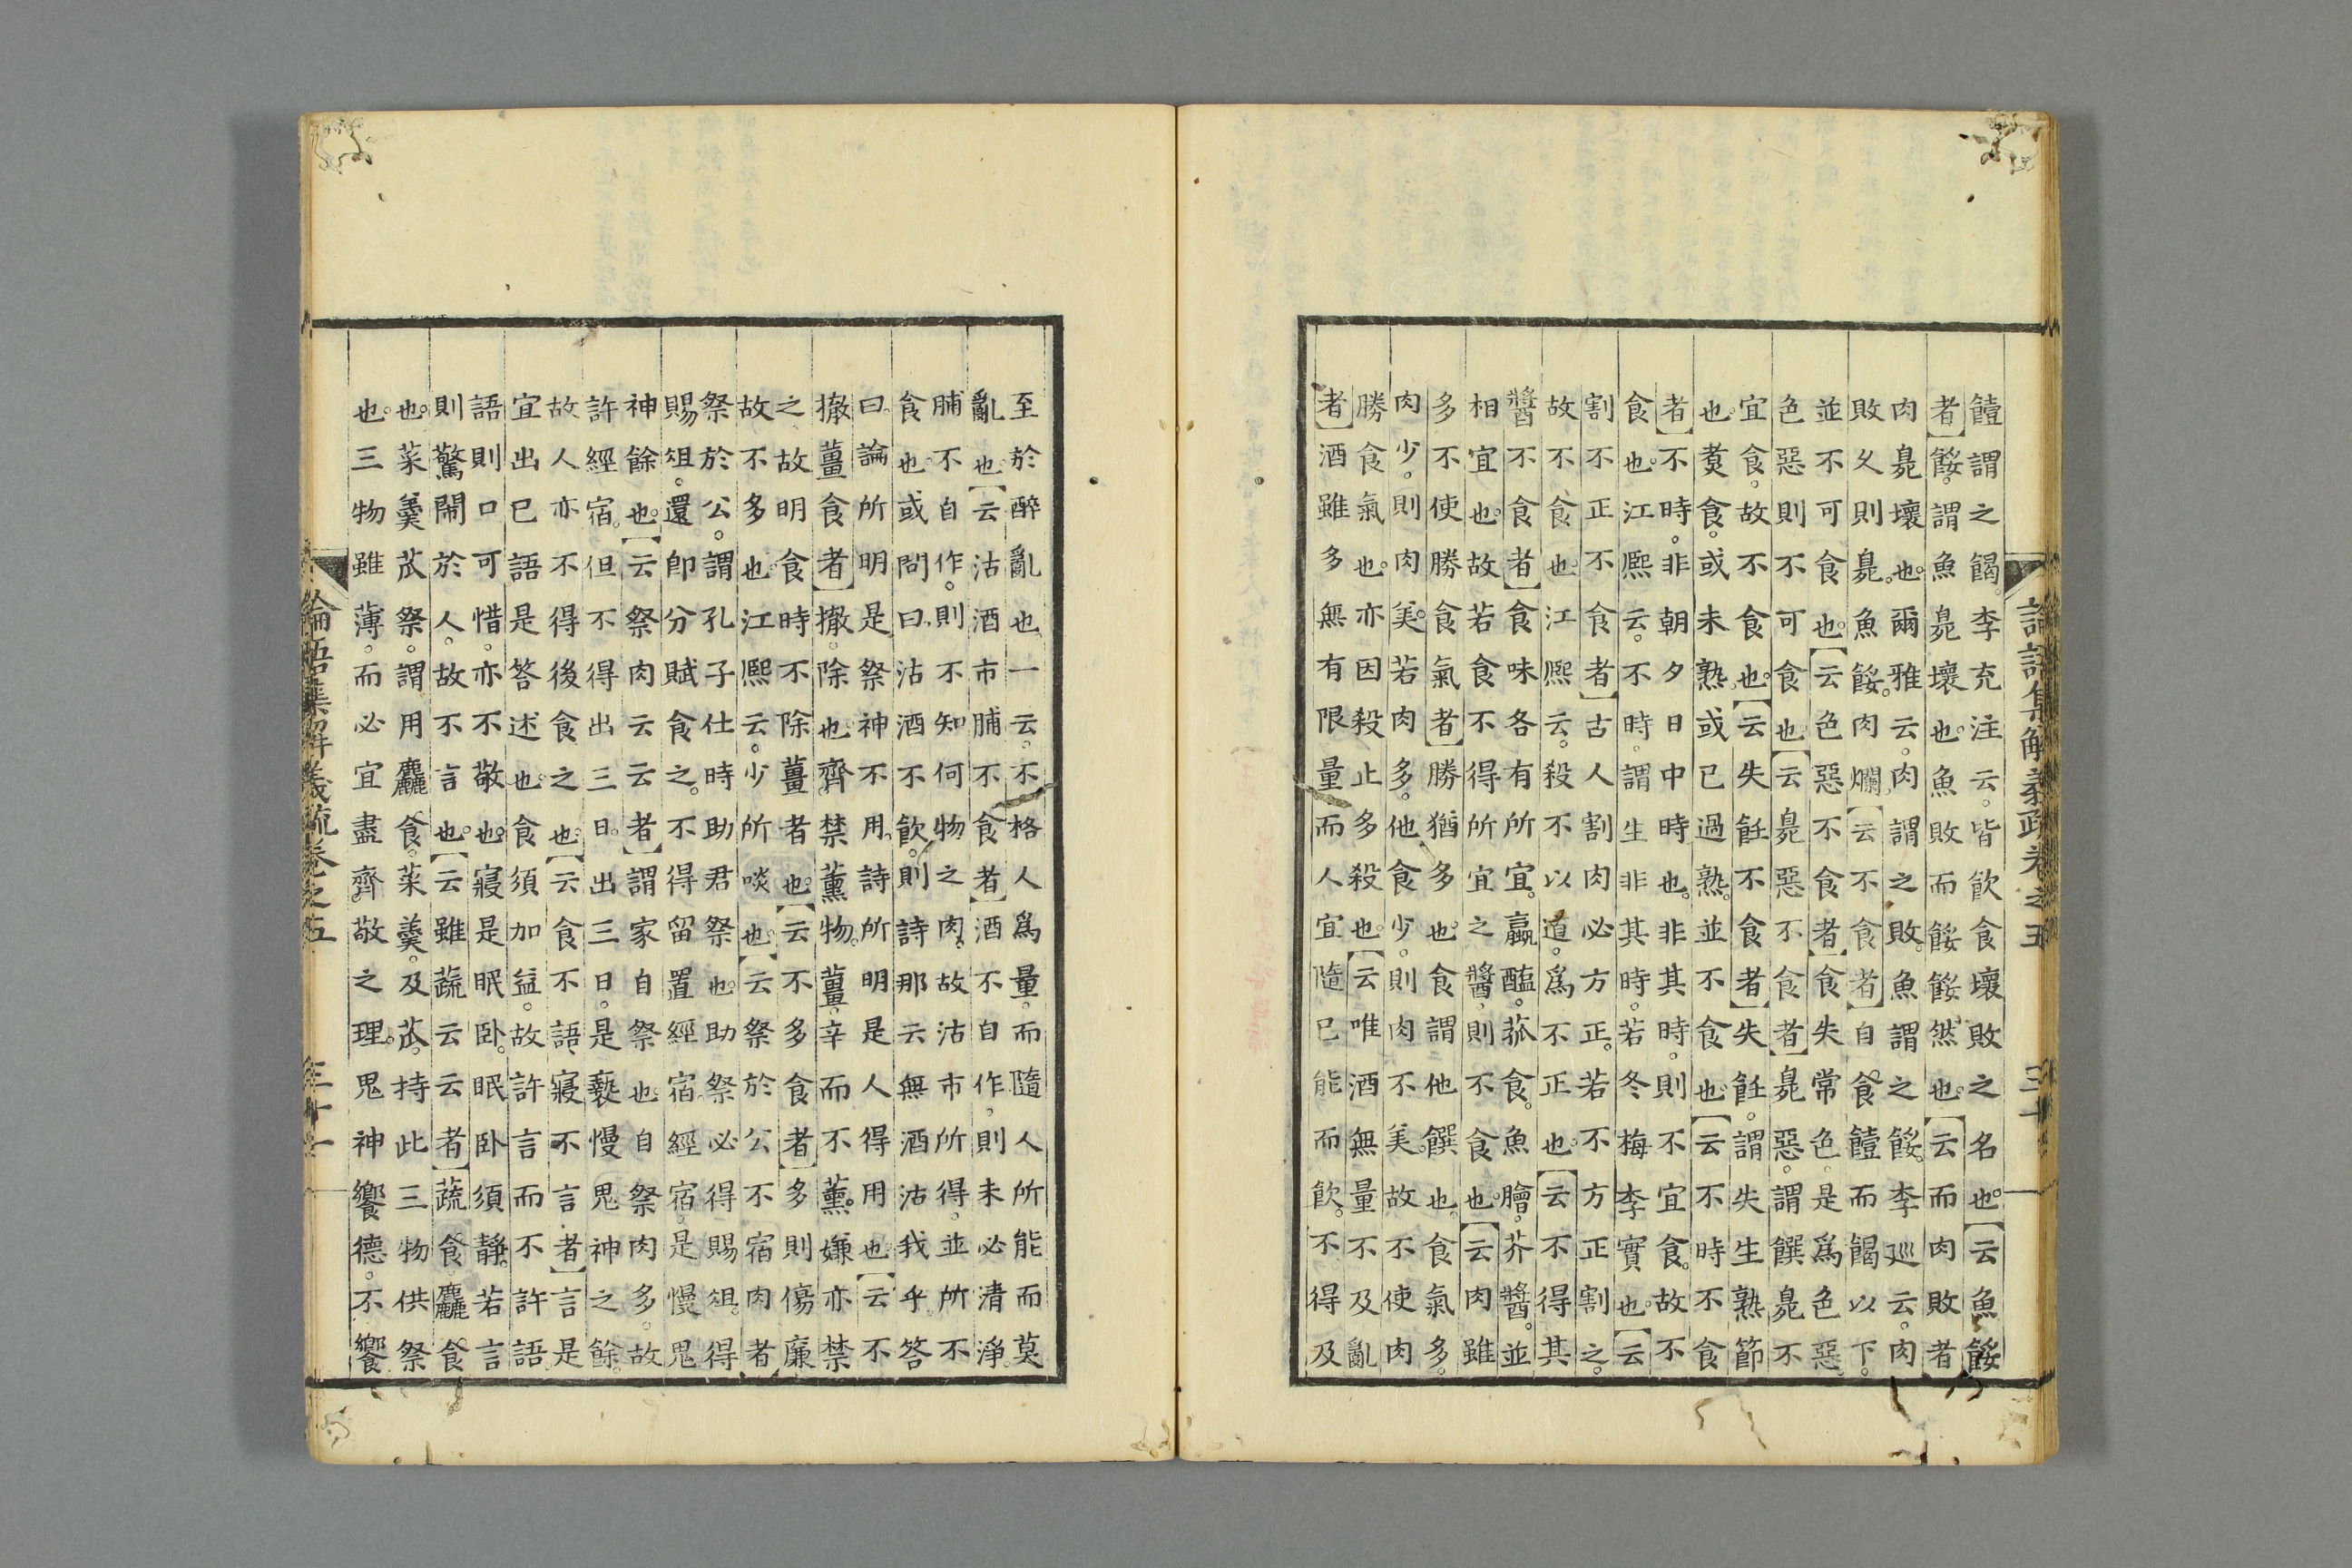 論語集解義疏卷之五 三十
饐謂之餲。李充注云。皆飲食壞敗之名也。【云魚餒
者】餒。謂魚臰壞也。魚敗而餒餒然也。【云而肉敗者
肉臰壞也。爾雅云。肉謂之敗。魚謂之餒。李巡云。肉
敗久則臰。魚餒肉爛。【云不食者】自食饐而餲以下。
並不可食也。【云色惡不食者】食失常色。是爲色惡。
色惡則不可食也。【云臰惡不食者】臰惡。謂饌臰不
宜食。故不食也。【云失飪不食者】失飪。謂失生熟節
也。煑食。或未熟。或已過熟。並不食也。【云不時不食
者】不時。非朝夕日中時也。非其時。則不宜食。故不
食也。江熈云。不時。謂生非其時。若冬梅李實也。【云
割不正不食者】古人割肉必方正。若不方正割之。
故不食也。江熈云。殺不以道。爲不正也。【云不得其
醬不食者】食味各有所宜。蠃醢。菰食。魚膾。芥醬。並
相宜也。故若食不得所宜之醬。則不食也。【云肉雖
多不使勝食氣者】勝猶多也。食謂他饌也。食氣多。
肉少。則肉美。若肉多。他食少。則肉不美。故不使肉
勝食氣也。亦因殺止多殺也。【云唯酒無量不及亂
者】酒雖多無有限量。而人宜隨已能而飲。不得及
至於醉亂也。一云。不格人爲量。而隨人所能而莫
亂也。【云沽酒市脯不食者】酒不自作。則未必清淨。
脯不自作。則不知何物之肉。故沽市所得。並所不
食也。或問曰。沽酒不飲。則詩那云無酒沽我乎。答
曰。論所明是祭神不用。詩所明是人得用也。【云不
撤薑食者】撤。除也。齊禁薰物。薑。辛而不薰。嫌亦禁
之故明食時不除薑者也。【云不多食者】多則傷廉
故不多也。江熈云。少所啖也。【云祭於公不宿肉者
祭於公。謂孔子仕時助君祭也。助祭必得賜俎。得
賜俎。還卽分賦食之。不得留置經宿。經宿。是慢鬼
神餘也。【云祭肉云云者】謂家自祭也。自祭肉多。故
許經宿。但不得出三日。出三日。是褻慢鬼神之餘。
故人亦不得後食之也。【云食不語、寢不言者】言是
宜出已語是答述也。食須加益。故許言而不許語
語則口可惜。亦不敬也。寢是眠卧。眠卧須靜。若言
則驚鬧於人。故不言也。【云雖蔬云云者】蔬食。麤食
也。菜羹苽祭。謂用麤食。菜羹。及苽。持此三物供祭
也。三物雖薄。而必宜盡齊敬之理。鬼神饗德。不饗
論語集解義疏卷之五 三十一